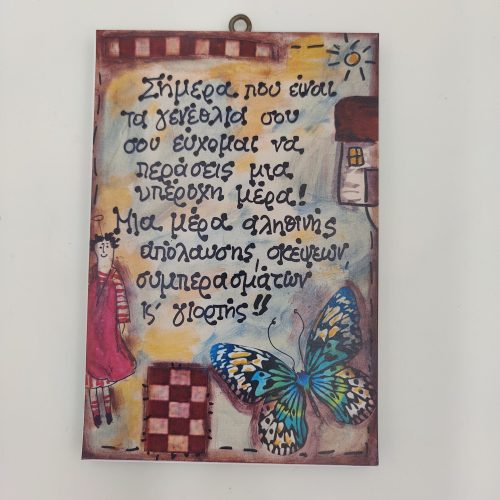 Σήμερα που είναι
τα γενέθλιά σου
σου εύχομαι να
περάσεις μια
υπέροχη μέρα!
Μια μέρα αληθινής
απόλαυσης, σκέψεων,
συμπερασμάτων
κ' γιορτής!!